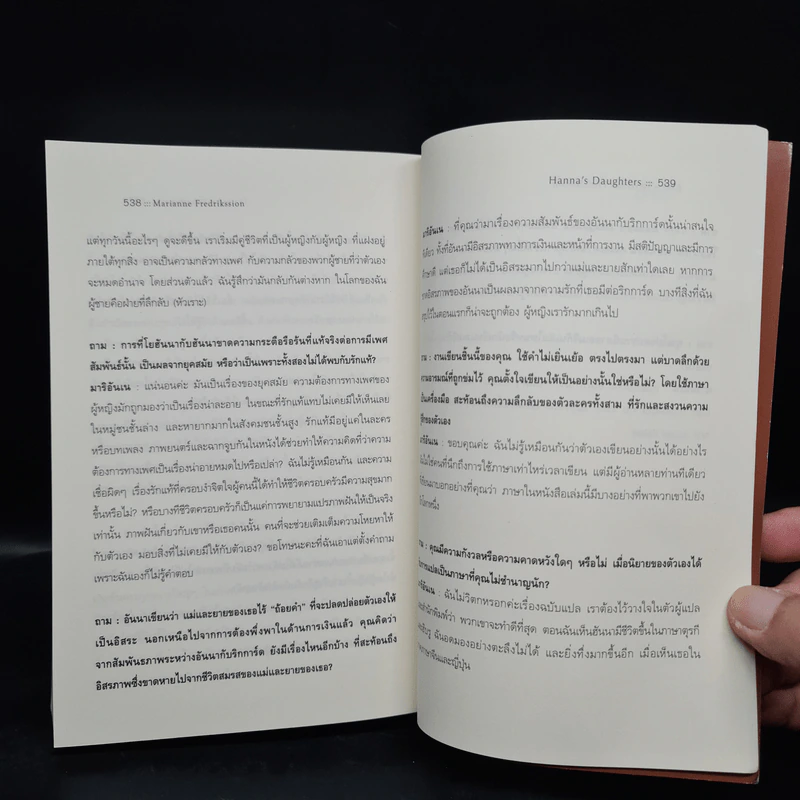 538 ::: Marianne Fredrikssion
แต่ทุกวันนี้อะไรๆ ดูจะดีขึ้น เราเริ่มมีคู่ชีวิตที่เป็นผู้หญิงกับผู้หญิง ที่แฝงอยู่
ภายใต้ทุกสิ่ง อาจเป็นความกลัวทางเพศ กับความกลัวของพวกผู้ชายที่ว่าตัวเอง
จะหมดอำนาจ โดยส่วนตัวแล้ว ฉันรู้สึกว่ามันกลับกันต่างหาก ในโลกของฉัน
ผู้ชายคือฝ่ายที่ลึกลับ (หัวเราะ)
ถาม : การที่โยฮันนากับฮันนาขาดความกระตือรือร้นที่แท้จริงต่อการมีเพศ
สัมพันธ์นั้น เป็นผลจากยุคสมัย หรือว่าเป็นเพราะทั้งสองไม่ได้พบกับรักแท้?
มาริอันเน : แน่นอนค่ะ มันเป็นเรื่องของยุคสมัย ความต้องการทางเพศของ
ผู้หญิงมักถูกมองว่าเป็นเรื่องน่าละอาย ในขณะที่รักแท้แทบไม่เคยมีให้เห็นเลย
ในหมู่ชนชั้นล่าง และหายากมากในสังคมชนชั้นสูง รักแท้มีอยู่แค่ในละคร
หรือบทเพลง ภาพยนตร์และฉากจูบกันในหนังได้ช่วยทำให้ความคิดที่ว่าความ
ต้องการทางเพศเป็นเรื่องน่าอายหมดไปหรือเปล่า? ฉันไม่รู้เหมือนกัน และความ
เชื่อผิดๆ เรื่องรักแท้ที่ครอบงำจิตใจผู้คนนี้ได้ทำให้ชีวิตครอบครัวมีความสุขมาก
ขึ้นหรือไม่? หรือบางทีชีวิตครอบครัวก็เป็นแค่การพยายามแปรภาพฝันให้เป็นจริง
เท่านั้น ภาพฝันเกี่ยวกับเขาหรือเธอคนนั้น คนที่จะช่วยเติมเต็มความโหยหา
กับตัวเอง มอบสิ่งที่ไม่เคยมีให้กับตัวเอง? ขอโทษนะคะที่ฉันเอาแต่ตั้งคำถาม
เพราะฉันเองก็ไม่รู้คำตอบ
ถาม : อันนาเขียนว่า แม่และยายของเธอไร้ "ถ้อยคำ" ที่จะปลดปล่อยตัวเองให้
เป็นอิสระ นอกเหนือไปจากการต้องพึ่งพาในด้านการเงินแล้ว คุณคิดว่า
จากสัมพันธภาพระหว่างอันนากับริกการ์ด ยังมีเรื่องไหนอีกบ้าง ที่สะท้อนถึง
อิสรภาพซึ่งขาดหายไปจากชีวิตสมรสของแม่และยายของเธอ?
Hanna's Daughters ::: 539
: ที่คุณว่ามาเรื่องความสัมพันธ์ของอันนากับริกการ์ดนั้นน่าสนใจ
ทั้งที่อันนามีอิสรภาพทางการเงินและหน้าที่การงาน มีสติปัญญาและมีการ
แต่เธอก็ไม่ได้เป็นอิสระมากไปกว่าแม่และยายสักเท่าใดเลย หากการ
อิสรภาพของอันนาเป็นผลมาจากความรักที่เธอมีต่อริกการ์ด บางทีสิ่งที่ฉัน
ไว้ในตอนแรกก็น่าจะถูกต้อง ผู้หญิงเรารักมากเกินไป
: งานเขียนชิ้นนี้ของคุณ ใช้คำไม่เยิ่นเย้อ ตรงไปตรงมา แต่บาดลึกด้วย
อารมณ์ที่ถูกข่มไว้ คุณตั้งใจเขียนให้เป็นอย่างนั้นใช่หรือไม่? โดยใช้ภาษา
เครื่องมือ สะท้อนถึงความลึกลับของตัวละครทั้งสาม ที่รักและสงวนความ
ของตัวเอง
: ขอบคุณค่ะ ฉันไม่รู้เหมือนกันว่าตัวเองเขียนอย่างนั้นได้อย่างไร
ไม่ใช่คนที่นึกถึงการใช้ภาษาเท่าไหร่เวลาเขียน แต่มีผู้อ่านหลายท่านทีเดียว
บอกอย่างที่คุณว่า ภาษาในหนังสือเล่มนี้มีบางอย่างที่พาพวกเขาไปยัง
: คุณมีความกังวลหรือความคาดหวังใดๆ หรือไม่ เมื่อนิยายของตัวเองได้
การแปลเป็นภาษาที่คุณไม่ชำนาญนัก?
: ฉันไม่วิตกหรอกค่ะเรื่องฉบับแปล เราต้องไว้วางใจในตัวผู้แปล
สำนักพิมพ์ว่า พวกเขาจะทำดีที่สุด ตอนฉันเห็นฮันนามีชีวิตขึ้นในภาษาตุรกี
ฉันอดมองอย่างตะลึงไม่ได้ และยิ่งทึ่งมากขึ้นอีก เมื่อเห็นเธอใน
ภาษาจีนและญี่ปุ่น